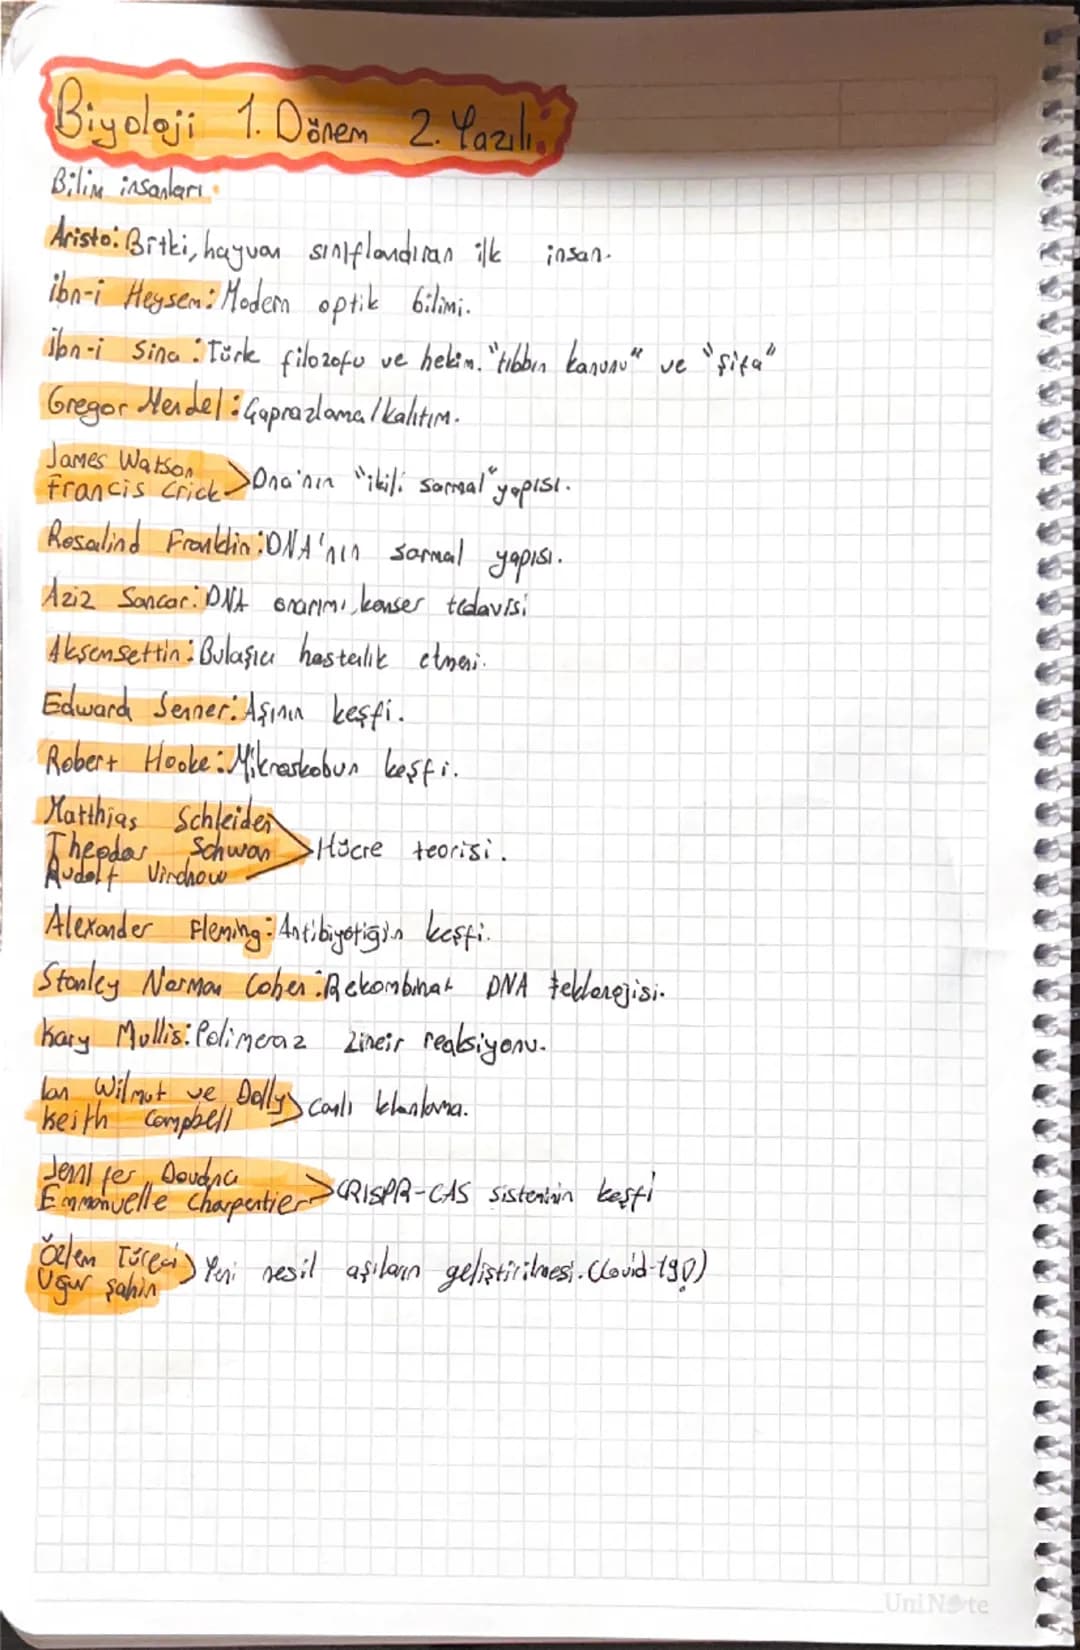 Biyoloji 1. Dönem 2. Yazılı:
Bilim insanları:
Aristo: Bitki, hayvan sınıflandıran ilk insan.
ibn-i Heysem: Modern optik bilimi.
ibn-i Sina: Türk filozofu ve hekim. "tıbbın kanunu" ve "şifa"
Gregor Mendel: Çaprazlama/kalıtım.
James Watson
Francis Crick
Dna'nın "ikili sarmal" yapısı.
Rosalind Franklin: DNA'nın sarmal yapısı.
Aziz Sancar: DNA onarımı, kanser tedavisi
Akşemsettin: Bulaşıcı hastalık etmeni.
Edward Jenner: Aşının keşfi.
Robert Hooke: Mikroskobun keşfi.
Matthias Schleiden
Theodor Schwan
Rudolf Virchow
Hücre teorisi.
Alexander Fleming: Antibiyotiğin keşfi.
Stanley Norman Cohen: Rekombinat DNA teknolojisi.
Kary Mullis: Polimeraz zincir reaksiyonu.
Ian Wilmut ve Dolly
Keith Campbell
Canlı klonlama.
Jennifer Doudna
Emmanuelle Charpentier
CRISPR-CAS sisteminin keşfi
Özlem Türeci
Uğur Şahin
Yeni nesil aşıların geliştirilmesi. (Covid-19)
UniNote